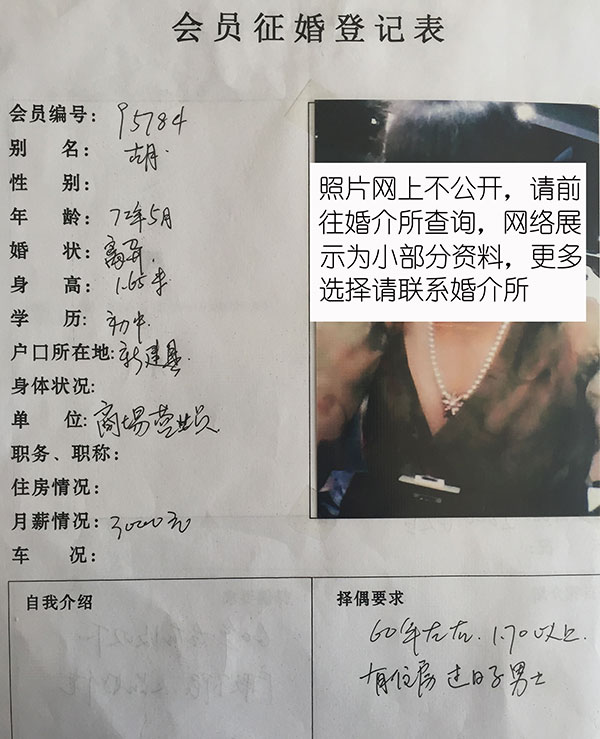 会员征婚登记表
会员编号：95784
别 名：胡
性 别：
年 龄：72年5月
婚 状：离异
身 高：1.65米
学 历：初中
户口所在地：新建县
身体状况：
单 位：商場营业员
职务、职称：
住房情况：
月薪情况：3000元
车 况：
照片网上不公开，请前
往婚介所查询，网络展
示为小部分资料，更多
选择请联系婚介所
自我介绍
择偶要求
60年左右．1.70以上．
有住房 过日子男士